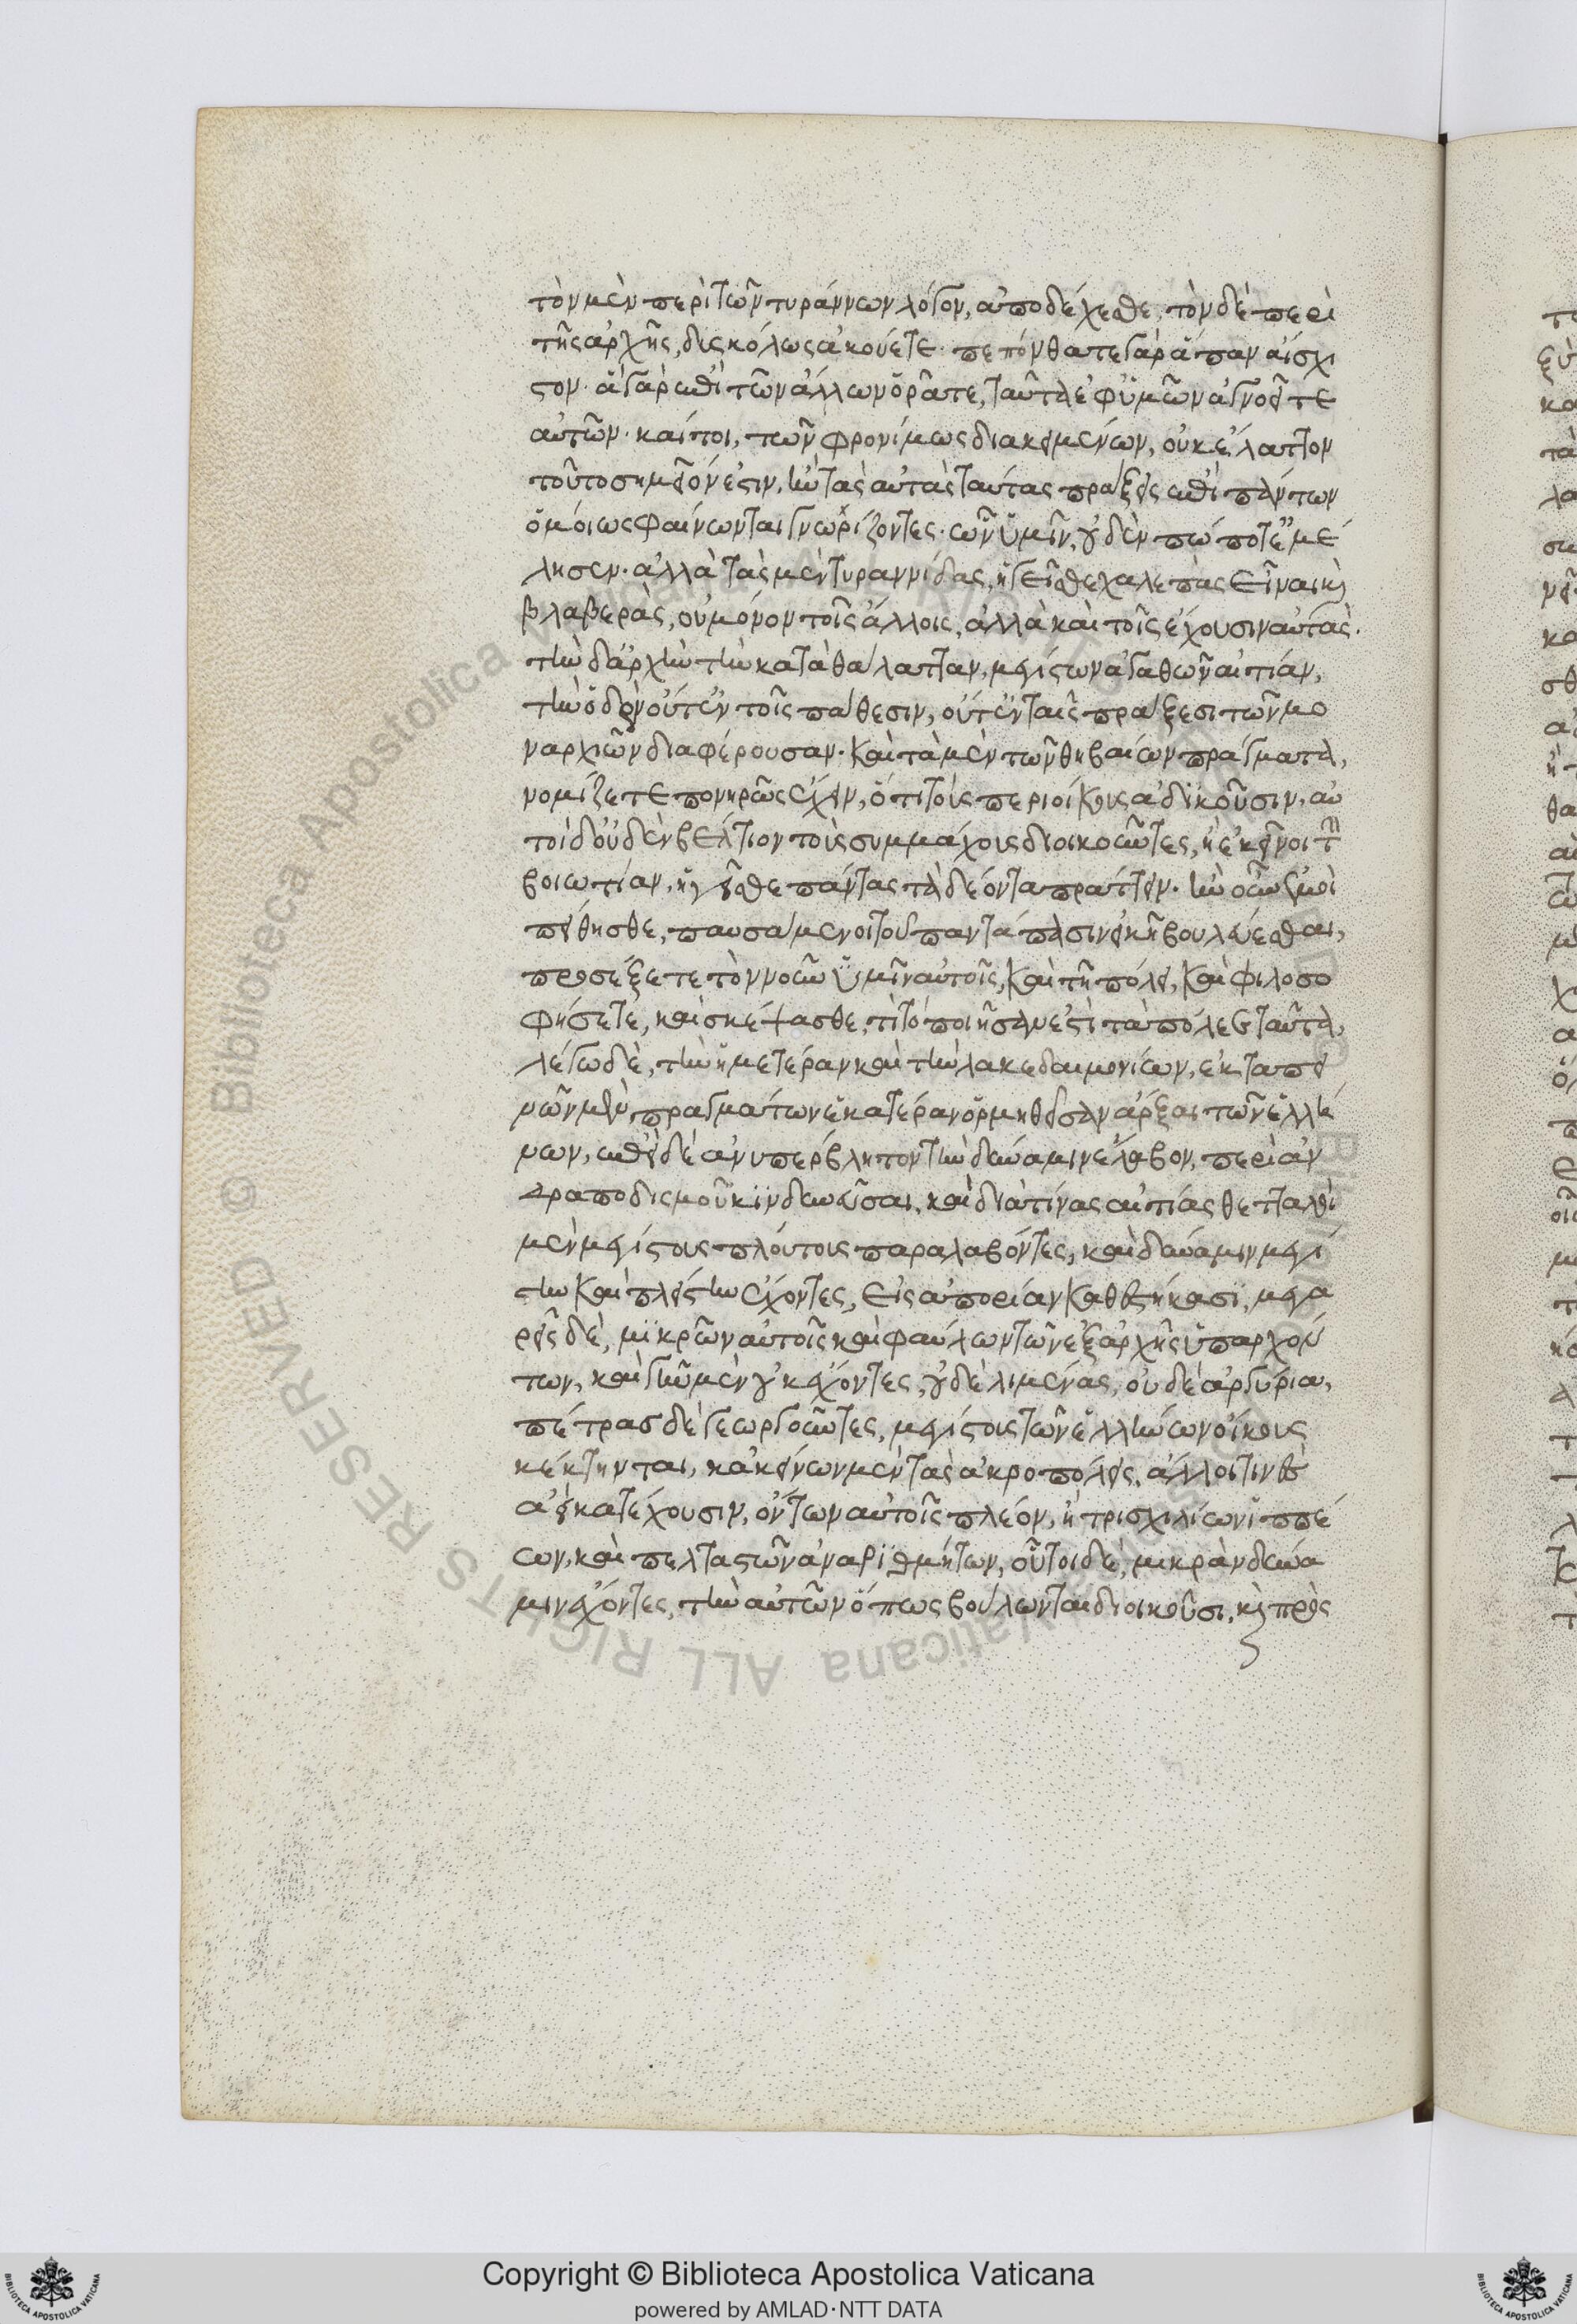 τὸν μὲν περὶ τῶν τυράννων λόγον, ἀποδέχεσθε, τὸν δὲ περὶ
τῆς ἀρχῆς, δυσκόλως ἀκούετε· πεπόνθατε γὰρ ἅπαν αἴσχι
στον· ἃ γὰρ ἐπὶ τῶν ἄλλων ὁρᾶτε, ταῦτα ἐφ' ὑμῶν ἀγνοεῖτε
αὐτῶν· καίτοι, τῶν φρονίμως διακειμένων, οὐκ ἐλάττον
τοῦτο σημεῖόν ἐστιν, ἢν τὰς αὐτὰς ταύτας πράξεις ἐπὶ πάντων
ὁμοίως φαίνωνται γνωρίζοντες· ὧν ὑμῖν, οὐδὲν πώποτε ἐμέ
λησεν· ἀλλὰ τὰς μὲν τυραννίδας, ἡγεῖσθε χαλεπὰς εἶναι καὶ
βλαβερὰς, οὐ μόνον τοῖς ἄλλοις, ἀλλὰ καὶ τοῖς ἔχουσιν αὐτάς·
τὴν δ' ἀρχὴν τὴν κατὰ θάλατταν, μεγίστων ἀγαθῶν αἰτίαν,
τὴν οὐδὲν οὔτ' ἐν τοῖς πάθεσιν, οὔτ' ἐν ταῖς πράξεσι τῶν μο
ναρχιῶν διαφέρουσαν· καὶ τὰ μὲν τῶν θηβαίων πράγματα,
νομίζετε πονηρῶς ἔχειν, ὅτι τοὺς περιοίκους ἀδικοῦσιν, αὐ
τοὶ δ' οὐδὲν βέλτιον τοὺς συμμάχους διοικοῦντες, ἢ ἐκεῖνοι τὴν
βοιωτίαν, ἡγεῖσθε πάντας τὰ δέοντα πράττειν· ἢν οὖν ἐμοὶ
πείθησθε, παυσάμενοι τοῦ παντάπασιν εἰκῆ βουλεύεσθαι,
προσέξετε τὸν νοῦν ὑμῖν αὐτοῖς, καὶ τῇ πόλει, καὶ φιλοσο
φήσετε, καὶ σκέψασθε, τί τὸ ποιῆσαν ἐστὶ τὼ πόλεε ταῦτα,
λέγω δὲ, τὴν ἡμετέραν καὶ τὴν λακεδαιμονίων, ἐκ ταπει
νῶν μὲν, πραγμάτων ἑκατέραν ὁρμηθεῖσαν ἄρξαι τῶν ἑλλή
νων, ἐπεὶ δὲ ἀνυπέρβλητον τὴν δύναμιν ἔλαβον, περὶ ἀν
δραποδισμοῦ κινδυνεῦσαι, καὶ διὰ τίνας αἰτίας θετταλοὶ
μὲν μεγίστους πλούτους παραλαβόντες, καὶ δύναμιν μεγί
στην καὶ πλείστην ἔχοντες, εἰς ἀπορίαν καθεστήκασι, μεγα
ρεῖς δὲ, μικρῶν αὐτοῖς καὶ φαύλων τῶν ἐξ ἀρχῆς ὑπαρχόν
των, καὶ γῆν μὲν οὐκ ἔχοντες, οὐδὲ λιμένας, οὐδὲ ἀργύρια,
πέτρας δὲ γεωργοῦντες, μεγίστους τῶν ἑλλήνων οἴκους
κέκτηνται, κἀκείνων μὲν τὰς ἀκροπόλεις, ἄλλοι τινὲς
ἀεὶ κατέχουσιν, ὄντων αὐτοῖς πλέον, ἢ τρισχιλίων ἱππέ
ων, καὶ πελταστῶν ἀναριθμήτων, οὗτοι δὲ, μικρὰν δύνα
μιν ἔχοντες, τὴν αὑτῶν ὅπως βούλωνται διοικοῦσι, καὶ πρὸς
Copyright © Biblioteca Apostolica Vaticana
powered by AMLAD·NTT DATA